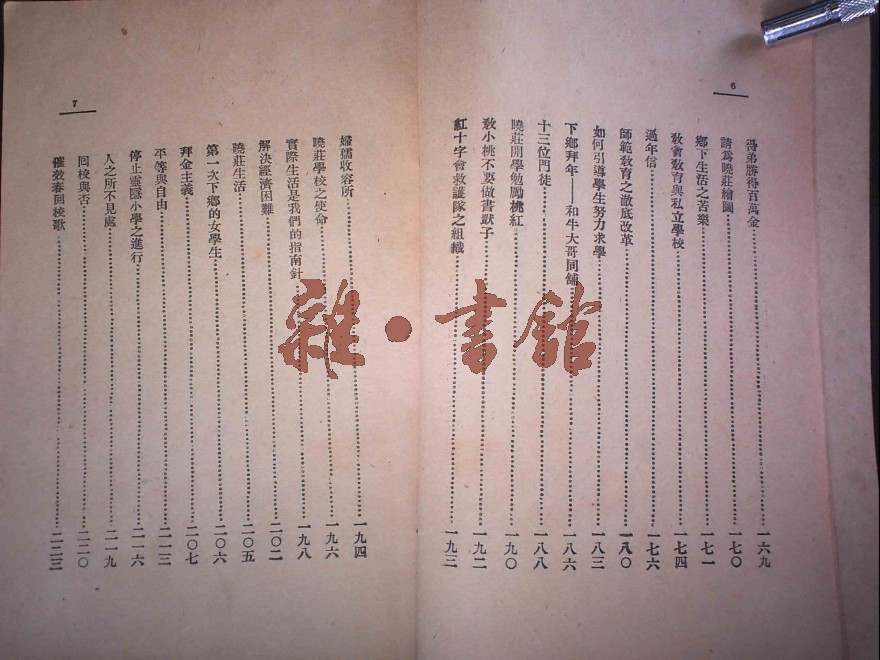 6
得弟勝得百萬金……一六九
請爲曉莊繪圖……一七〇
鄉下生活之苦樂……一七一
敎會敎育與私立學校……一七四
過年信……一七六
師範敎育之澈底改革……一八〇
如何引導學生努力求學……一八三
下鄉拜年——和牛大哥同舖……一八六
十三位門徒……一八八
曉莊開學勉勵桃紅……一九〇
敎小桃不要做書獃子……一九二
紅十字會救護隊之組織……一九三
7
婦孺收容所……一九四
曉莊學校之使命……一九六
實際生活是我們的指南針……一九八
解決經濟困難……二〇二
曉莊生活……二〇五
第一次下鄉的女學生……二〇六
拜金主義……二〇七
平等與自由……二一三
停止靈隧小學之進行……二一六
人之所不見處……二一九
回校與否……二二〇
催效春回校歌……二二三
雜·書館